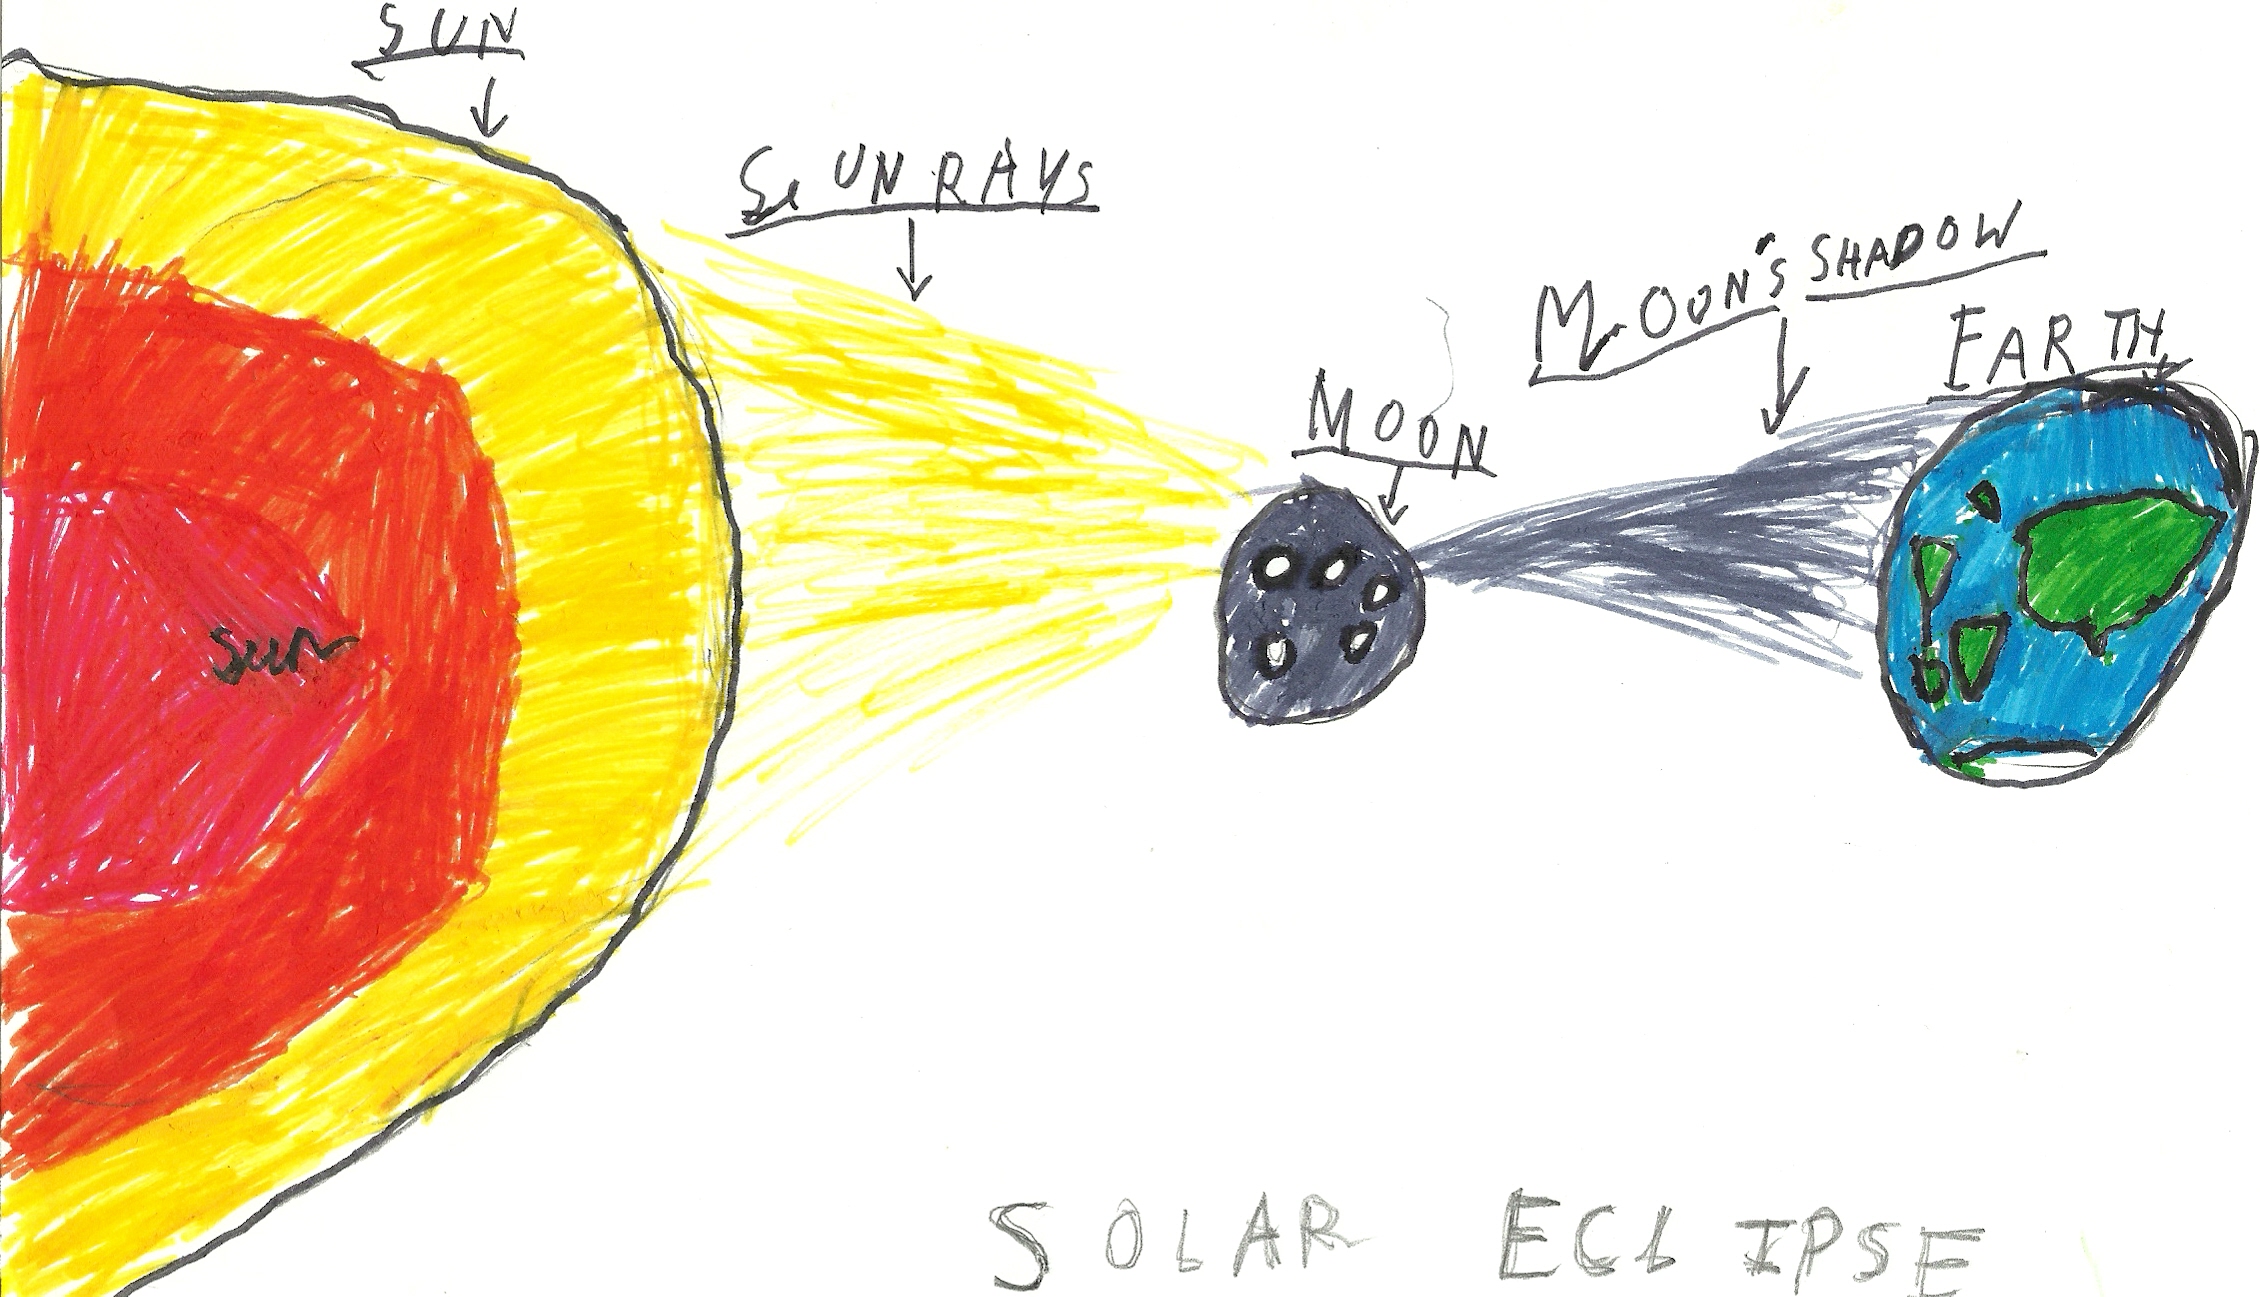 SUN
SUN RAYS
MOON'S SHADOW
EARTH
MOON
Sun
SOLAR ECLIPSE